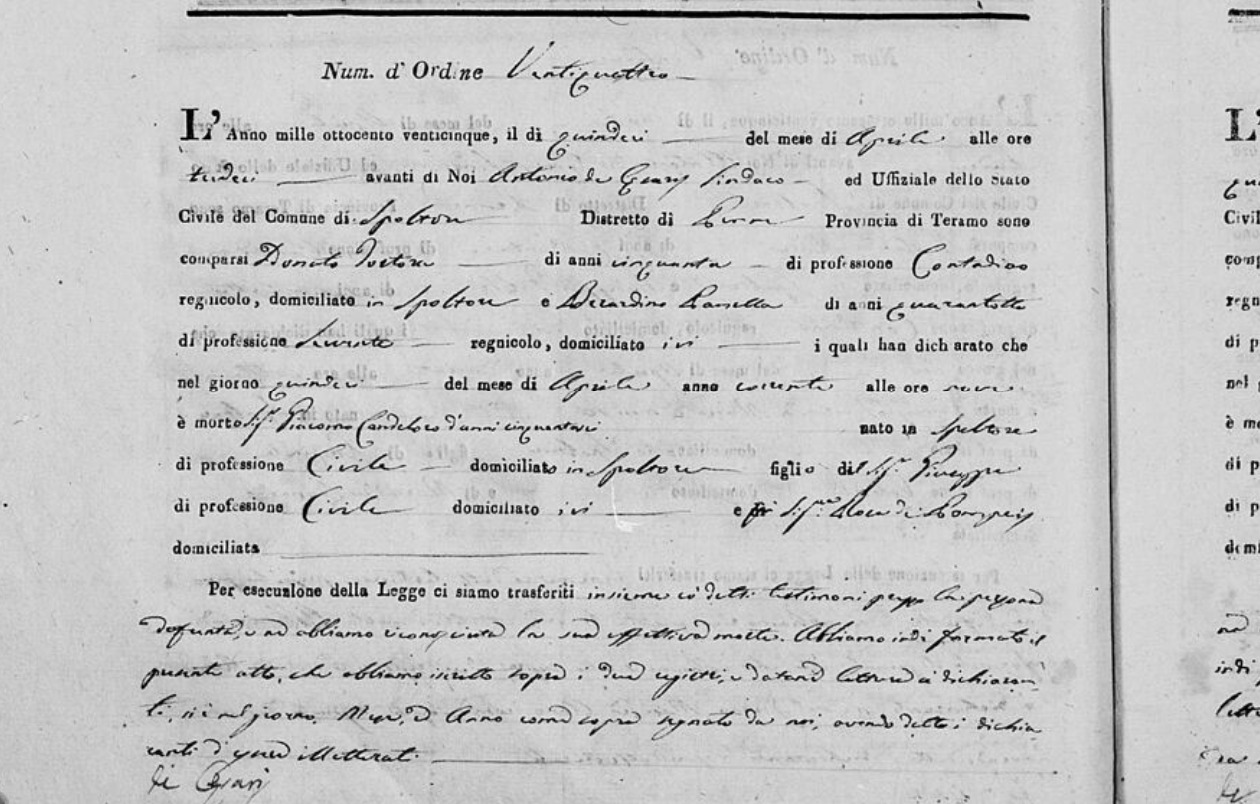 Num. d' Ordine Ventiquattro
L' Anno mille ottocento venticinque, il dì quindeci del mese di Aprile alle ore
tredeci avanti di Noi Antonio de Cesaris Sindaco ed Uffiziale dello Stato
Civile del Comune di Spoltore Distretto di Penne Provincia di Teramo sono
comparsi Donato di anni cinquanta di professione Contadino
regnicolo, domiciliato in Spoltore e Berardino di anni quarantotto
di professione Servente regnicolo, domiciliato ivi i quali han dichiarato che
nel giorno quindeci del mese di Aprile anno corrente alle ore nove
è morto Sig.r Giacomo Candeloro d'anni cinquantasei nato in Spoltore
di professione Civile domiciliato in Spoltore figlio del Sig.r Giuseppe
di professione Civile domiciliato ivi e Sig.ra Rosa de Pompeis
domiciliata
Per esecuzione della Legge ci siamo trasferiti insieme co' detti testimonj presso la persona
defunta, e ne abbiamo riconosciuta la sua effettiva morte. Abbiamo indi formato il
presente atto, che abbiamo iscritto sopra i due registri, e datane lettura ai dichiaran-
ti, si è nel giorno, Mese, ed Anno come sopra segnato da noi, avendo detto i dichia
ranti d'essere illetterati.
de Cesaris
L'
Civil
comp
regn
di p
nel
è mo
di p
di p
domi
indi